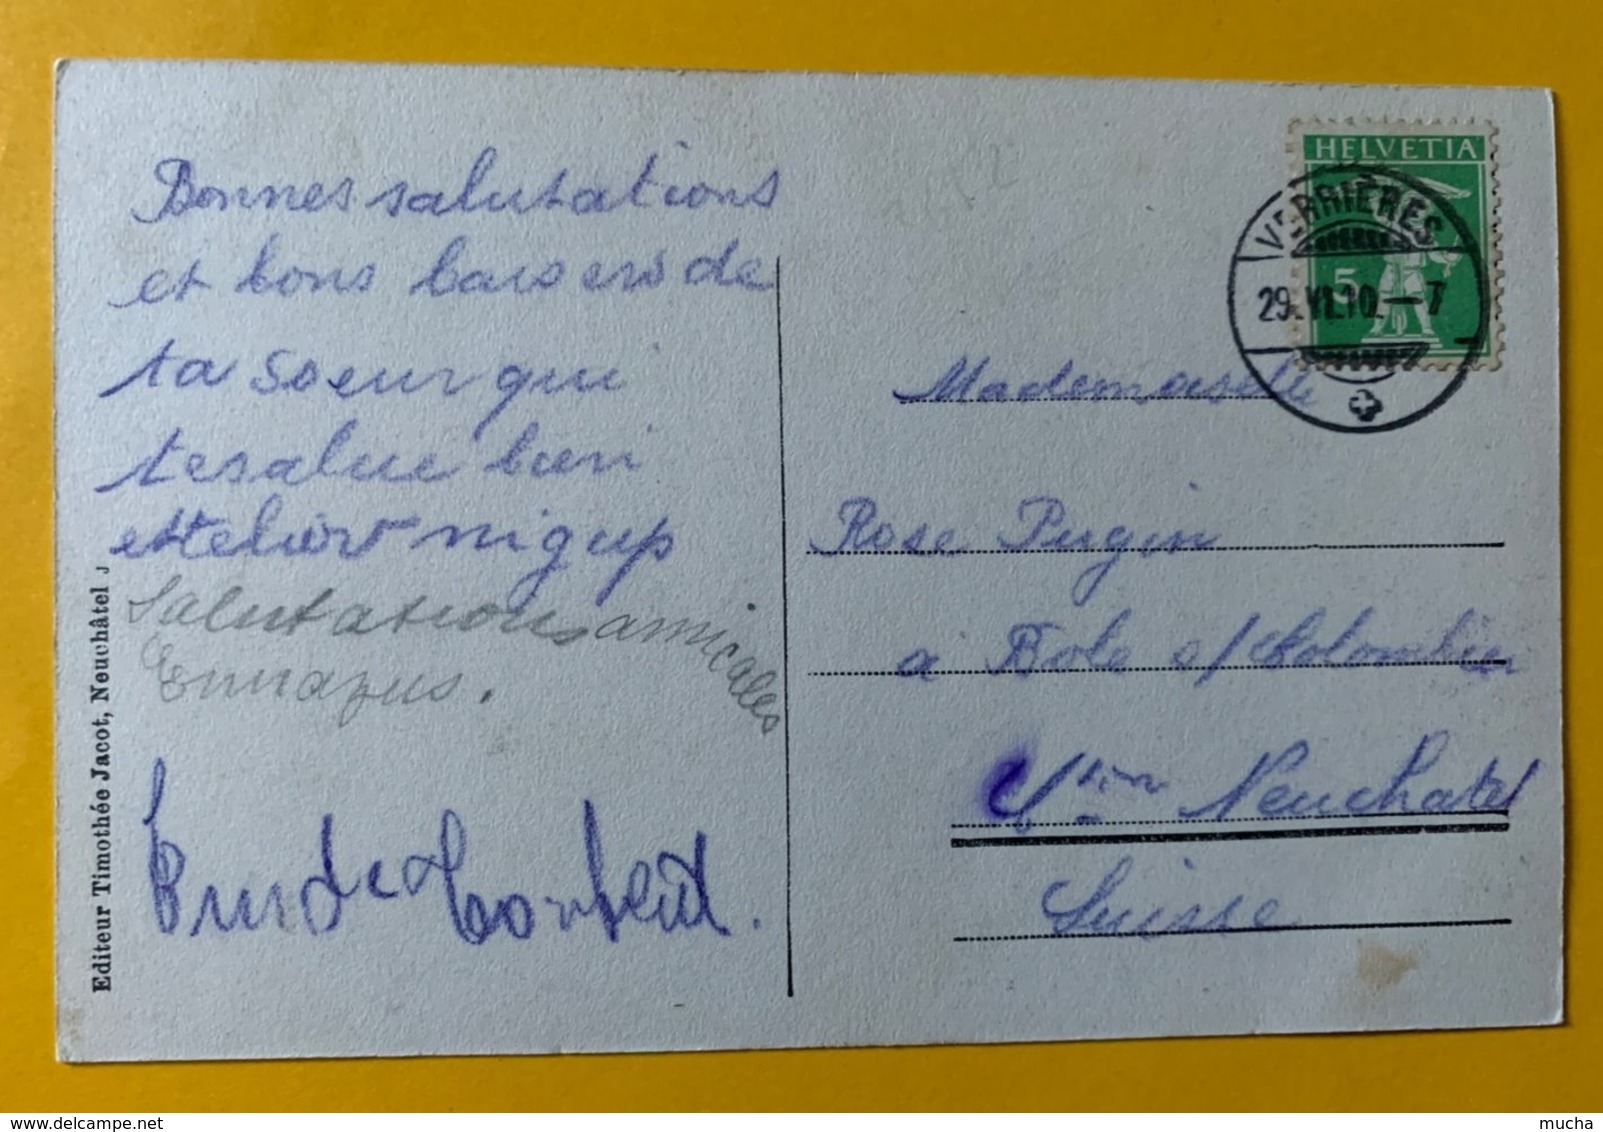 Bonnes salutations
et bons baisers de
ta soeur qui
te salue bien
Salutations amicales
Editeur Timothée Jacot, Neuchâtel J
HELVETIA
5
VERRIÈRES
29.VI.10.—7
Mademoiselle
Rose Pugin
a Bole s/ Colombier
Neuchatel
Suisse
delcampe.net
mucha